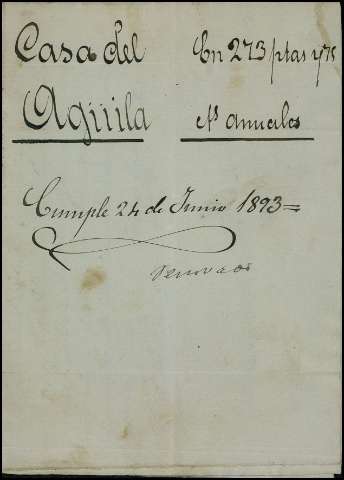 Casa del
Aguila
En 273 ptas y 75
cts anuales
Cumple 24 de Junio 1893=
Renovado